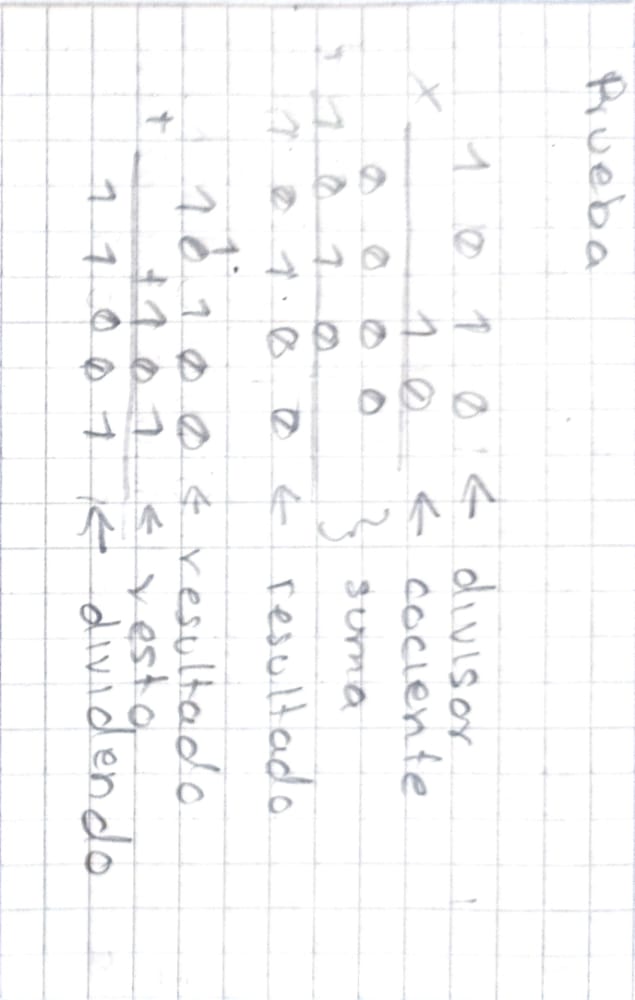 Prueba
1 0 1 0 ← divisor
x 1 0 ← cociente
0 0 0 0 } suma
+ 1 0 1 0
1 0 1 0 0 ← resultado
1
1 0 1 0 0 ← resultado
+ + 1 0 1 ← resto
1 1 0 0 1 ← dividendo